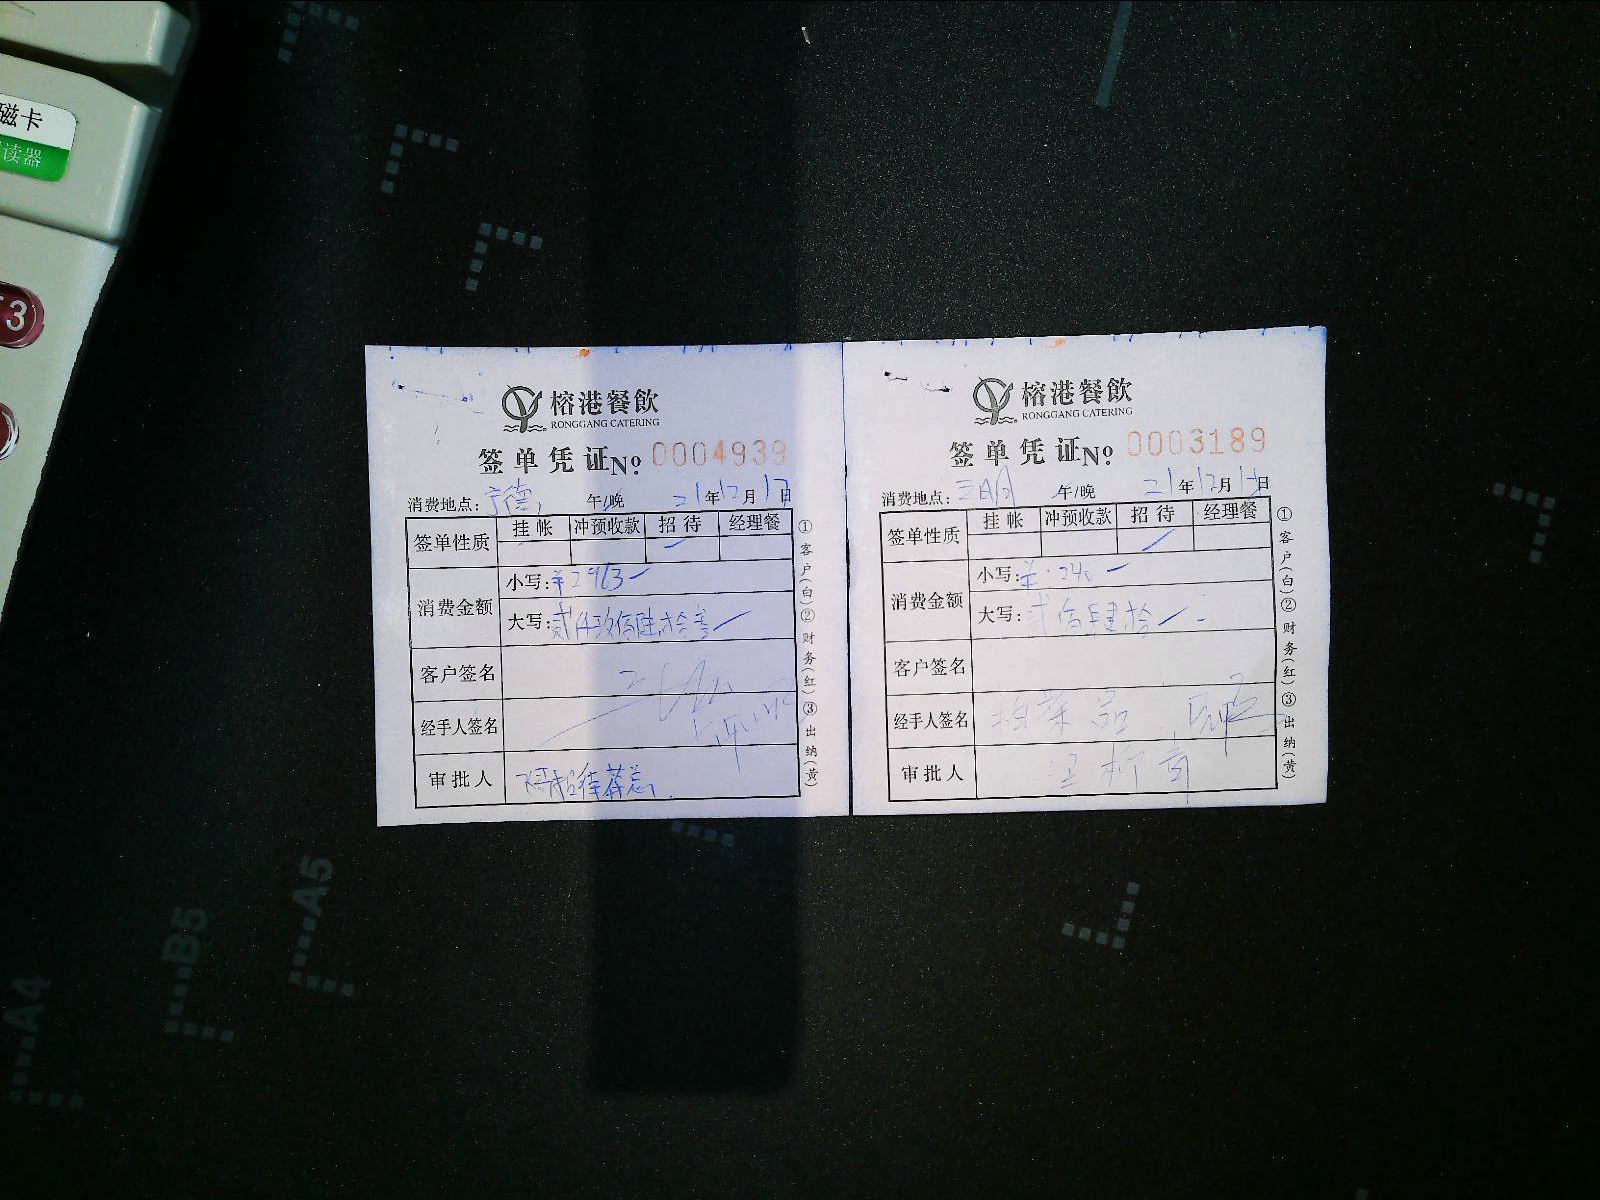 磁卡
读器
3
榕港餐飲
RONGGANG CATERING
签单凭证No 0004939
消费地点: 宁德 午/晚 21年12月17日
签单性质 挂帐 冲预收款 招待 经理餐
消费金额 小写:¥2963
大写:贰仟玖佰陆拾叁
客户签名
经手人签名
审批人
①客户(白)②财务(红)③出纳(黄)
榕港餐飲
RONGGANG CATERING
签单凭证No 0003189
消费地点: 午/晚 21年12月日
签单性质 挂帐 冲预收款 招待 经理餐
消费金额 小写:¥240
大写:贰佰肆拾
客户签名
经手人签名
审批人
①客户(白)②财务(红)③出纳(黄)
A4
B5
A5